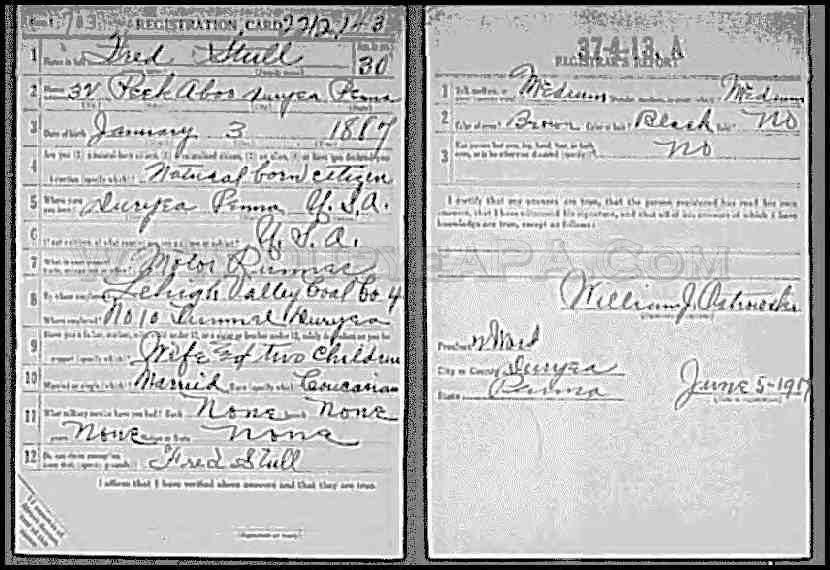 REGISTRATION CARD
1 Name in full Fred Stull 30
2 Home 32 Peck Abor Duryea Penna
3 Date of birth January 3 1887
4 Are you (1) a natural-born citizen, (2) a naturalized citizen, (3) an alien, (4) or have you declared your
intention (specify which)? Natural born citizen
5 Where were you born? Duryea Penna U.S.A.
6 If not a citizen, of what country are you a citizen or subject? U.S.A.
7 What is your present trade, occupation, or office? Motor
8 By whom employed? Lehigh Valley Coal Co
Where employed? No 10 Duryea
9 Have you a father, mother, wife, child under 12, or a sister or brother under 12, solely dependent on you for
support (specify which)? Wife and two children
10 Married or single (which)? Married Race (specify which)? Caucasian
11 What military service have you had? Rank None branch None
years None Nation or State None
12 Do you claim exemption from draft (specify grounds)? Fred Stull
I affirm that I have verified above answers and that they are true.
(Signature or mark)
37-4-13. A
REGISTRAR'S REPORT
1 Medium Medium
2 Color of eyes? Brown Color of hair? Black Bald? No
3 Has person lost arm, leg, hand, foot, or both
eyes, or is he otherwise disabled (specify)? No
I certify that my answers are true, that the person registered has read his own
answers, that I have witnessed his signature, and that all of his answers of which I have
knowledge are true, except as follows:
William J. Ostrowski
Precinct Ward
City or County Duryea
State Penna
June 5-1917
(Date of registration)